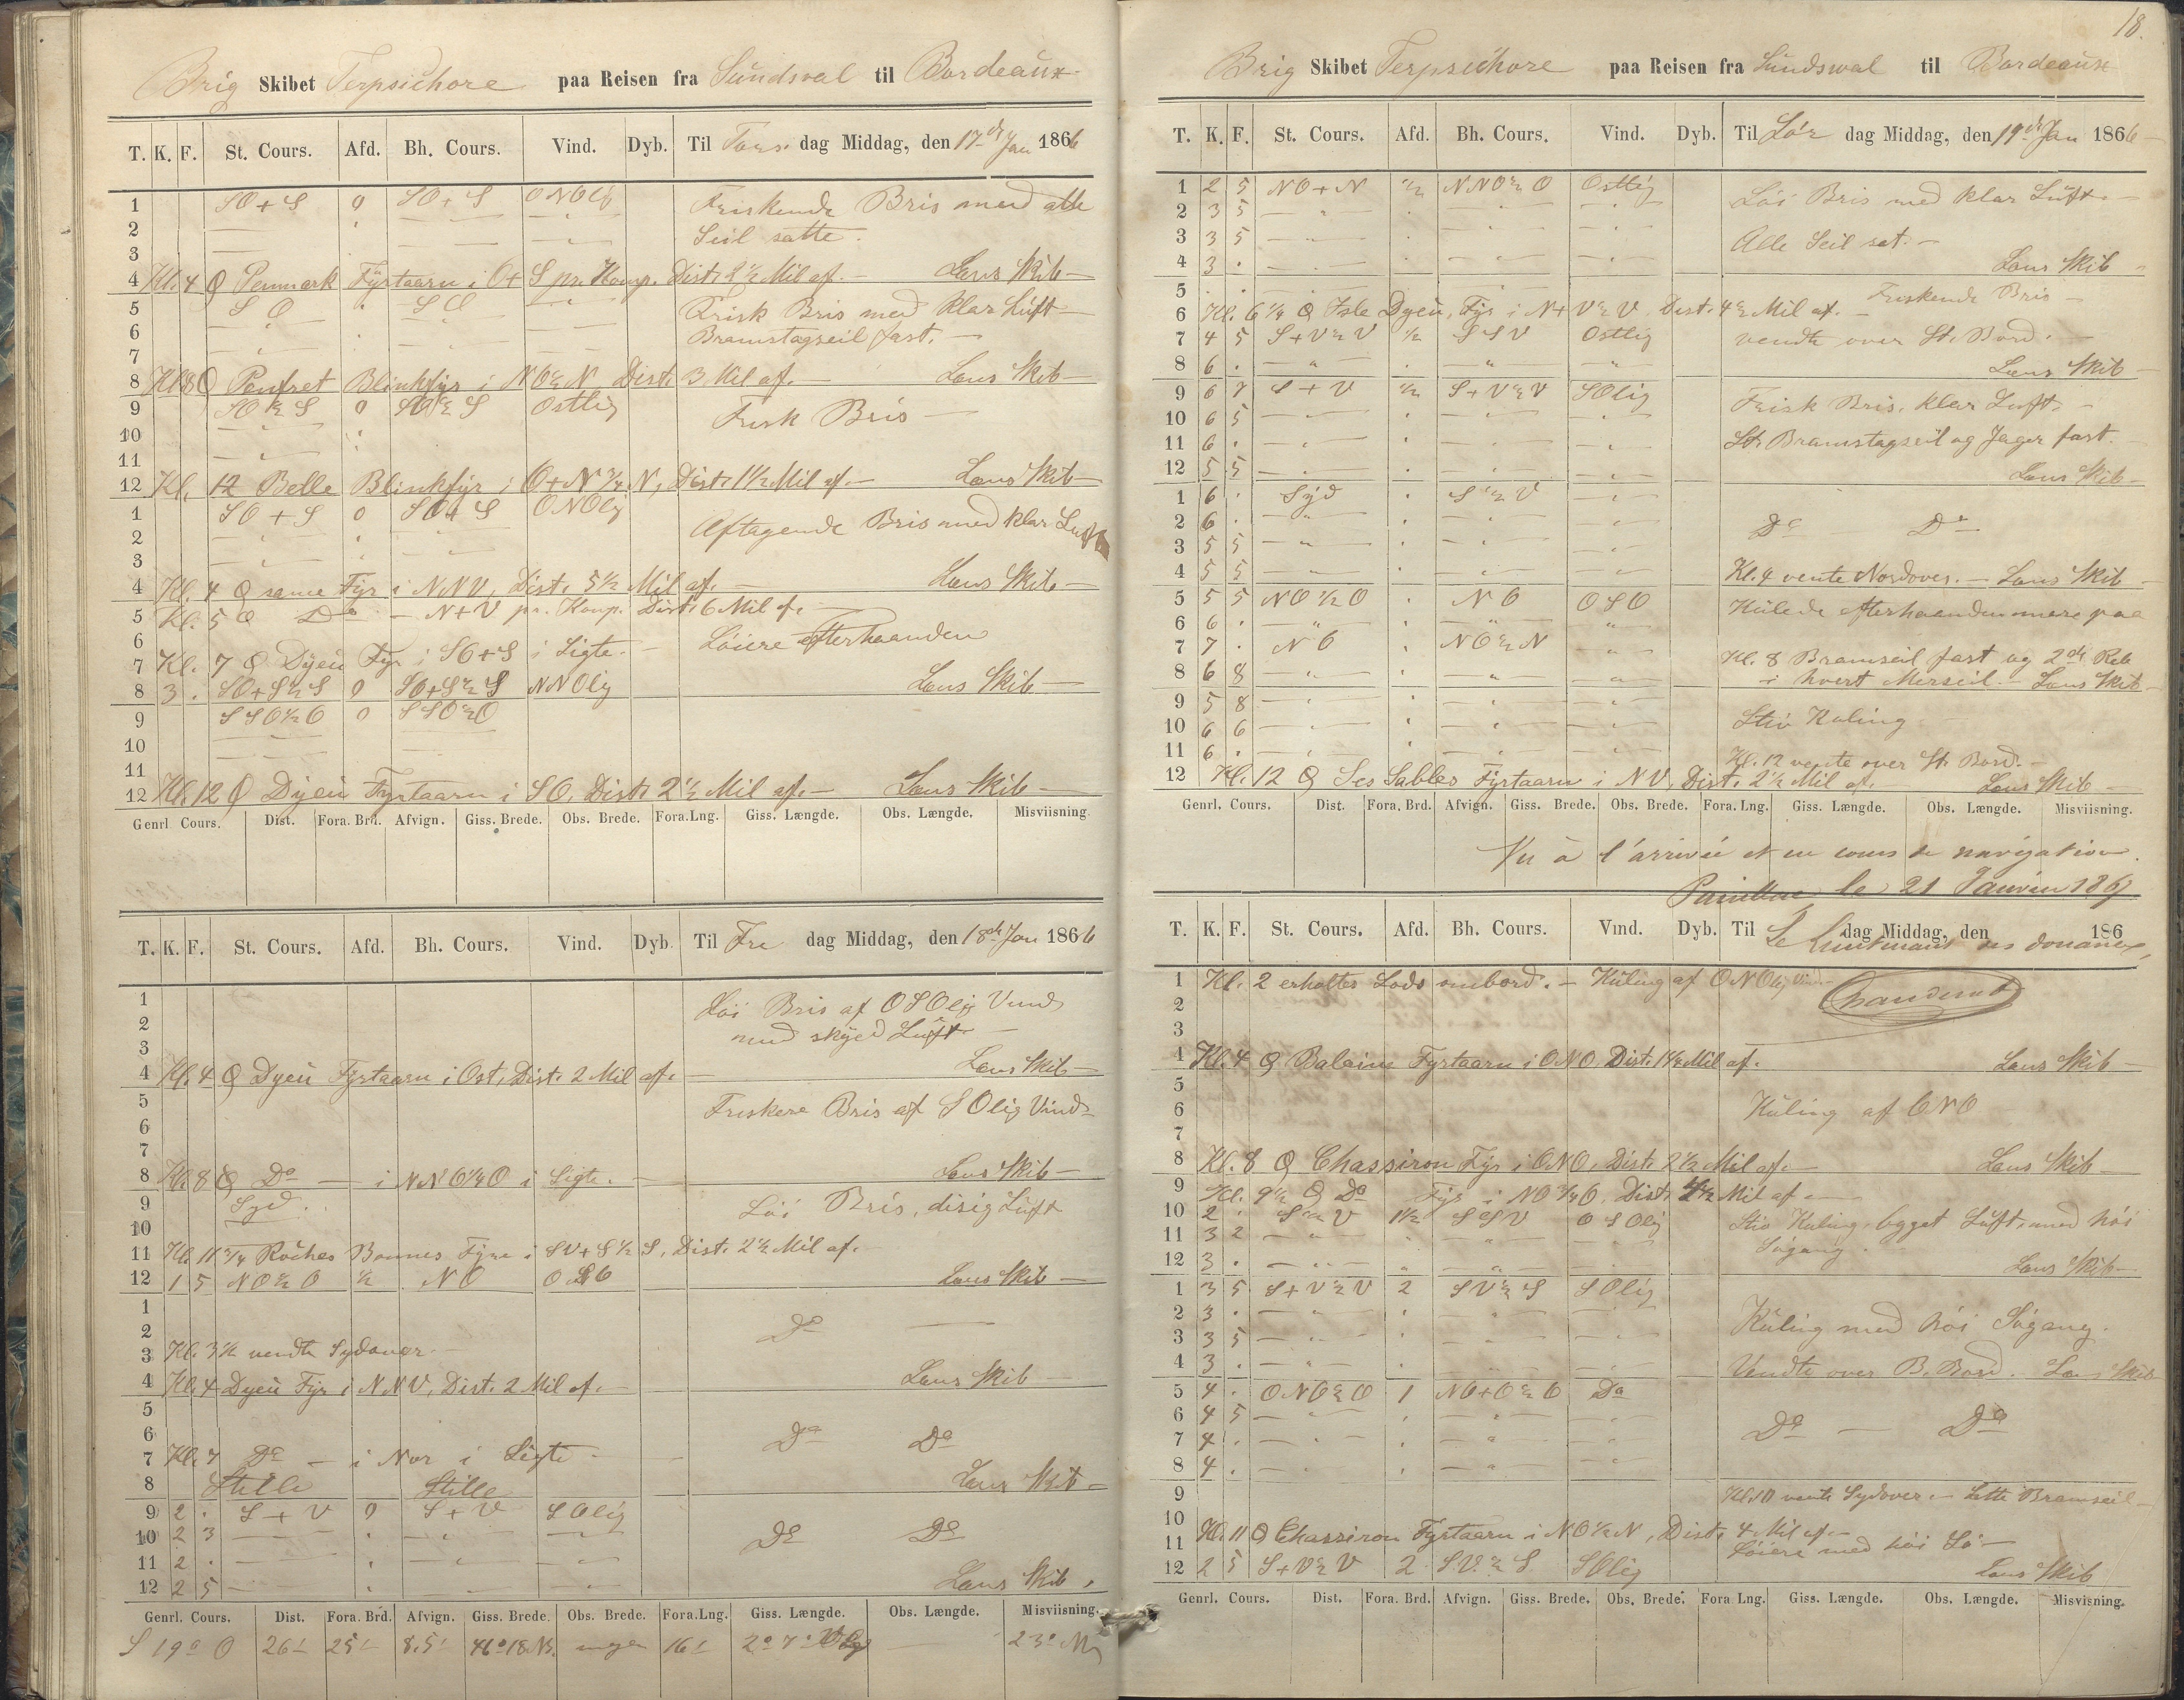 Brig Skibet Terpsichore paa Reisen fra Sundsval til Bordeaux
T. K. F. St. Cours. Afd. Bh. Cours. Vind. Dyb. Til Tors dag Middag, den 17de Jan 1866
1 SO+S 0 SO+S ONOlig Friskende Bris med alle
2 Seil satte.
3
4 Kl. 4 Penmark Fyrtaarn i O+S pr. Komp. Dist. 2 1/2 Mil af. — Lens Skib —
5 SO " SO Frisk Bris med klar Luft —
6 Bramstagseil fast. —
7
8 Kl. 8 Penfret Blinkfyr i NO½N Dist. 3 Mil af. — Lens Skib —
9 SO½S 0 SO½S Ostlig Frisk Bris —
10
11
12 Kl. 12 Belle Blinkfyr i O+N 3/4 N, Dist. 1 1/2 Mil af. — Lens Skib —
1 SO+S 0 SO+S ONOlig Aftagende Bris med klar Luft
2
3
4 Kl. 4 samme Fyr i NNV, Dist. 5 1/2 Mil af. — Lens Skib —
5 Kl. 5 Do — N+V pr. Komp. Dist. 6 Mil af. —
6 Løiere efterhaanden
7 Kl. 7 Dyeu Fyr i SO+S i Sigte. —
8 3 . SO+S½S 0 SO+S½S NNOlig Lens Skib —
9 SSO½O 0 SSO½O
10
11
12 Kl. 12 Dyeu Fyrtaarn i SO, Dist. 2 1/2 Mil af. — Lens Skib —
Genrl. Cours. Dist. Fora. Brd. Afvign. Giss. Brede. Obs. Brede. Fora. Lng. Giss. Længde. Obs. Længde. Misviisning.
T. K. F. St. Cours. Afd. Bh. Cours. Vind. Dyb. Til Fre dag Middag, den 18de Jan 1866
1 Løi Bris af OSOlig Vind
2 med skyed Luft —
3
4 Kl. 4 Dyeu Fyrtaarn i Ost, Dist. 2 Mil af. — Lens Skib —
5 Friskere Bris af SOlig Vind —
6
7
8 Kl. 8 Do — i NNO¼O i Sigte. — Lens Skib —
9 Syd. Løi Bris, disig Luft
10
11 Kl. 11 3/4 Roches Bonnes Fyre i SV+S½S, Dist. 2 1/2 Mil af. —
12 1 5 NO½O ½ NO OSO Lens Skib —
1
2 Do —
3 Kl. 3 1/2 vendte Sydover. —
4 Kl. 4 Dyeu Fyr i NNV, Dist. 2 Mil af. — Lens Skib —
5
6 Do Do
7 Kl. 7 Do — i Nor i Sigte —
8 Stille Stille Lens Skib —
9 2 . S+V 0 S+V SOlig
10 2 3 Do Do
11 2 .
12 2 5 Lens Skib.
Genrl. Cours. Dist. Fora. Brd. Afvign. Giss. Brede. Obs. Brede. Fora. Lng. Giss. Længde. Obs. Længde. Misviisning.
S 19° O 26' 25' 8.5' 46°18 N. ingen 16' 2° 7' 23°
18.
Brig Skibet Terpsichore paa Reisen fra Sundswal til Bordeaux
T. K. F. St. Cours. Afd. Bh. Cours. Vind. Dyb. Til Lør dag Middag, den 19de Jan 1866
1 2 5 NO+N ½ NNO½O Ostlig Løi Bris med klar Luft. —
2 3 5
3 3 5 Alle Seil sat. —
4 3 . Lens Skib —
5 . Friskende Bris —
6 Kl. 6 1/4 Isle Dyeu Fyr i N+V½V Dist. 4½ Mil af. —
7 4 5 S+V½V ½ SSV Ostlig vendte over St. Bord. —
8 6 . Lens Skib —
9 6 7 S+V ½ S+V½V SOlig Frisk Bris, klar Luft. —
10 6 5
11 6 . St. Bramstagseil og Jager fast.
12 5 5 Lens Skib —
1 6 . Syd . S½V
2 6 . Do Do
3 5 5
4 5 5 Kl. 4 vente Nordover. — Lens Skib
5 5 5 NO½O . NO OSO Kulede efterhaanden mere paa
6 6 .
7 7 . NO NO½N
8 6 8 Kl. 8 Bramseil fast og 2de Reb
i hvert Merseil. — Lens Skib —
9 5 8
10 6 6 Stiv Kuling
11 6 . Kl. 12 vente over St. Bord. —
12 Kl. 12 Les Sables Fyrtaarn i NV, Dist. 2 1/2 Mil af. Lens Skib —
Genrl. Cours. Dist. Fora. Brd. Afvign. Giss. Brede. Obs. Brede. Fora. Lng. Giss. Længde. Obs. Længde. Misviisning.
Vu à l'arrivée et en cours de navigation.
le 21 Janvier 186
T. K. F. St. Cours. Afd. Bh. Cours. Vind. Dyb. Til dag Middag, den 186
Le Lieutenant des douanes,
1 Kl. 2 erholtes Lods ombord. — Kuling af ONOlig Vind
2
3
4 Kl. 4 Baleine Fyrtaarn i ONO, Dist. 1 1/2 Mil af. Lens Skib —
5
6 Kuling af ONO
7
8 Kl. 8 Chassiron Fyr i ONO, Dist. 2 1/2 Mil af. — Lens Skib —
9 Kl. 9 1/2 Do Fyr i NO 3/4 O, Dist. 4 1/2 Mil af. —
10 2 . S½V 1½ SSV OSOlig Stiv Kuling, bygget Luft, med høi
11 3 2 Søgang.
12 3 . Lens Skib —
1 3 5 S+V½V 2 SV½S SOlig
2 3 . Kuling med høi Søgang.
3 3 5
4 3 . Vendte over B. Bord. Lens Skib
5 4 . ONO½O 1 NO+O½O Do
6 4 5 Do — Do
7 4 .
8 4 .
9 Kl. 10 vente Sydover. — Sætte Bramseil —
10
11 Kl. 11 Chassiron Fyrtaarn i NO½N, Dist. 4 Mil af. —
Løiere med høi Sø —
12 2 5 S+V½V 2 S.V.½S SOlig Lens Skib
Genrl. Cours. Dist. Fora. Brd. Afvign. Giss. Brede. Obs. Brede. Fora. Lng. Giss. Længde. Obs. Længde. Misvisning.